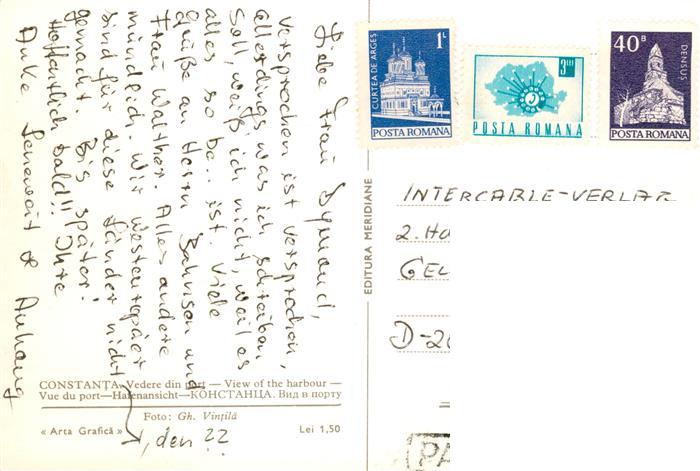 Liebe Frau Symanci,
versprochen ist versprochen,
allerdings was ich schreiben
soll, weiß ich nicht, weil es
alles so be.. ist. Viele
Grüße an Herrn Bahnson und
Frau Walther. Alles andere
mündlich. Wir Westeuropäer
sind für diese Länder nicht
gemacht. Bis später!
Hoffentlich bald!! Ihre
Anke & Anhang
, den 22.
CONSTANȚA. Vedere din port — View of the harbour —
Vue du port—Hafenansicht—КОНСТАНЦА. Вид в порту
Foto: Gh. Vințilă
« Arta Grafică »
Lei 1,50
EDITURA MERIDIANE
CURTEA DE ARGEȘ
1L
POSTA ROMANA
3 LEI
POSTA ROMANA
40B
DENSUȘ
POSTA ROMANA
INTERCABLE-VERLAG
2. Ho
GEL
D-20
PA